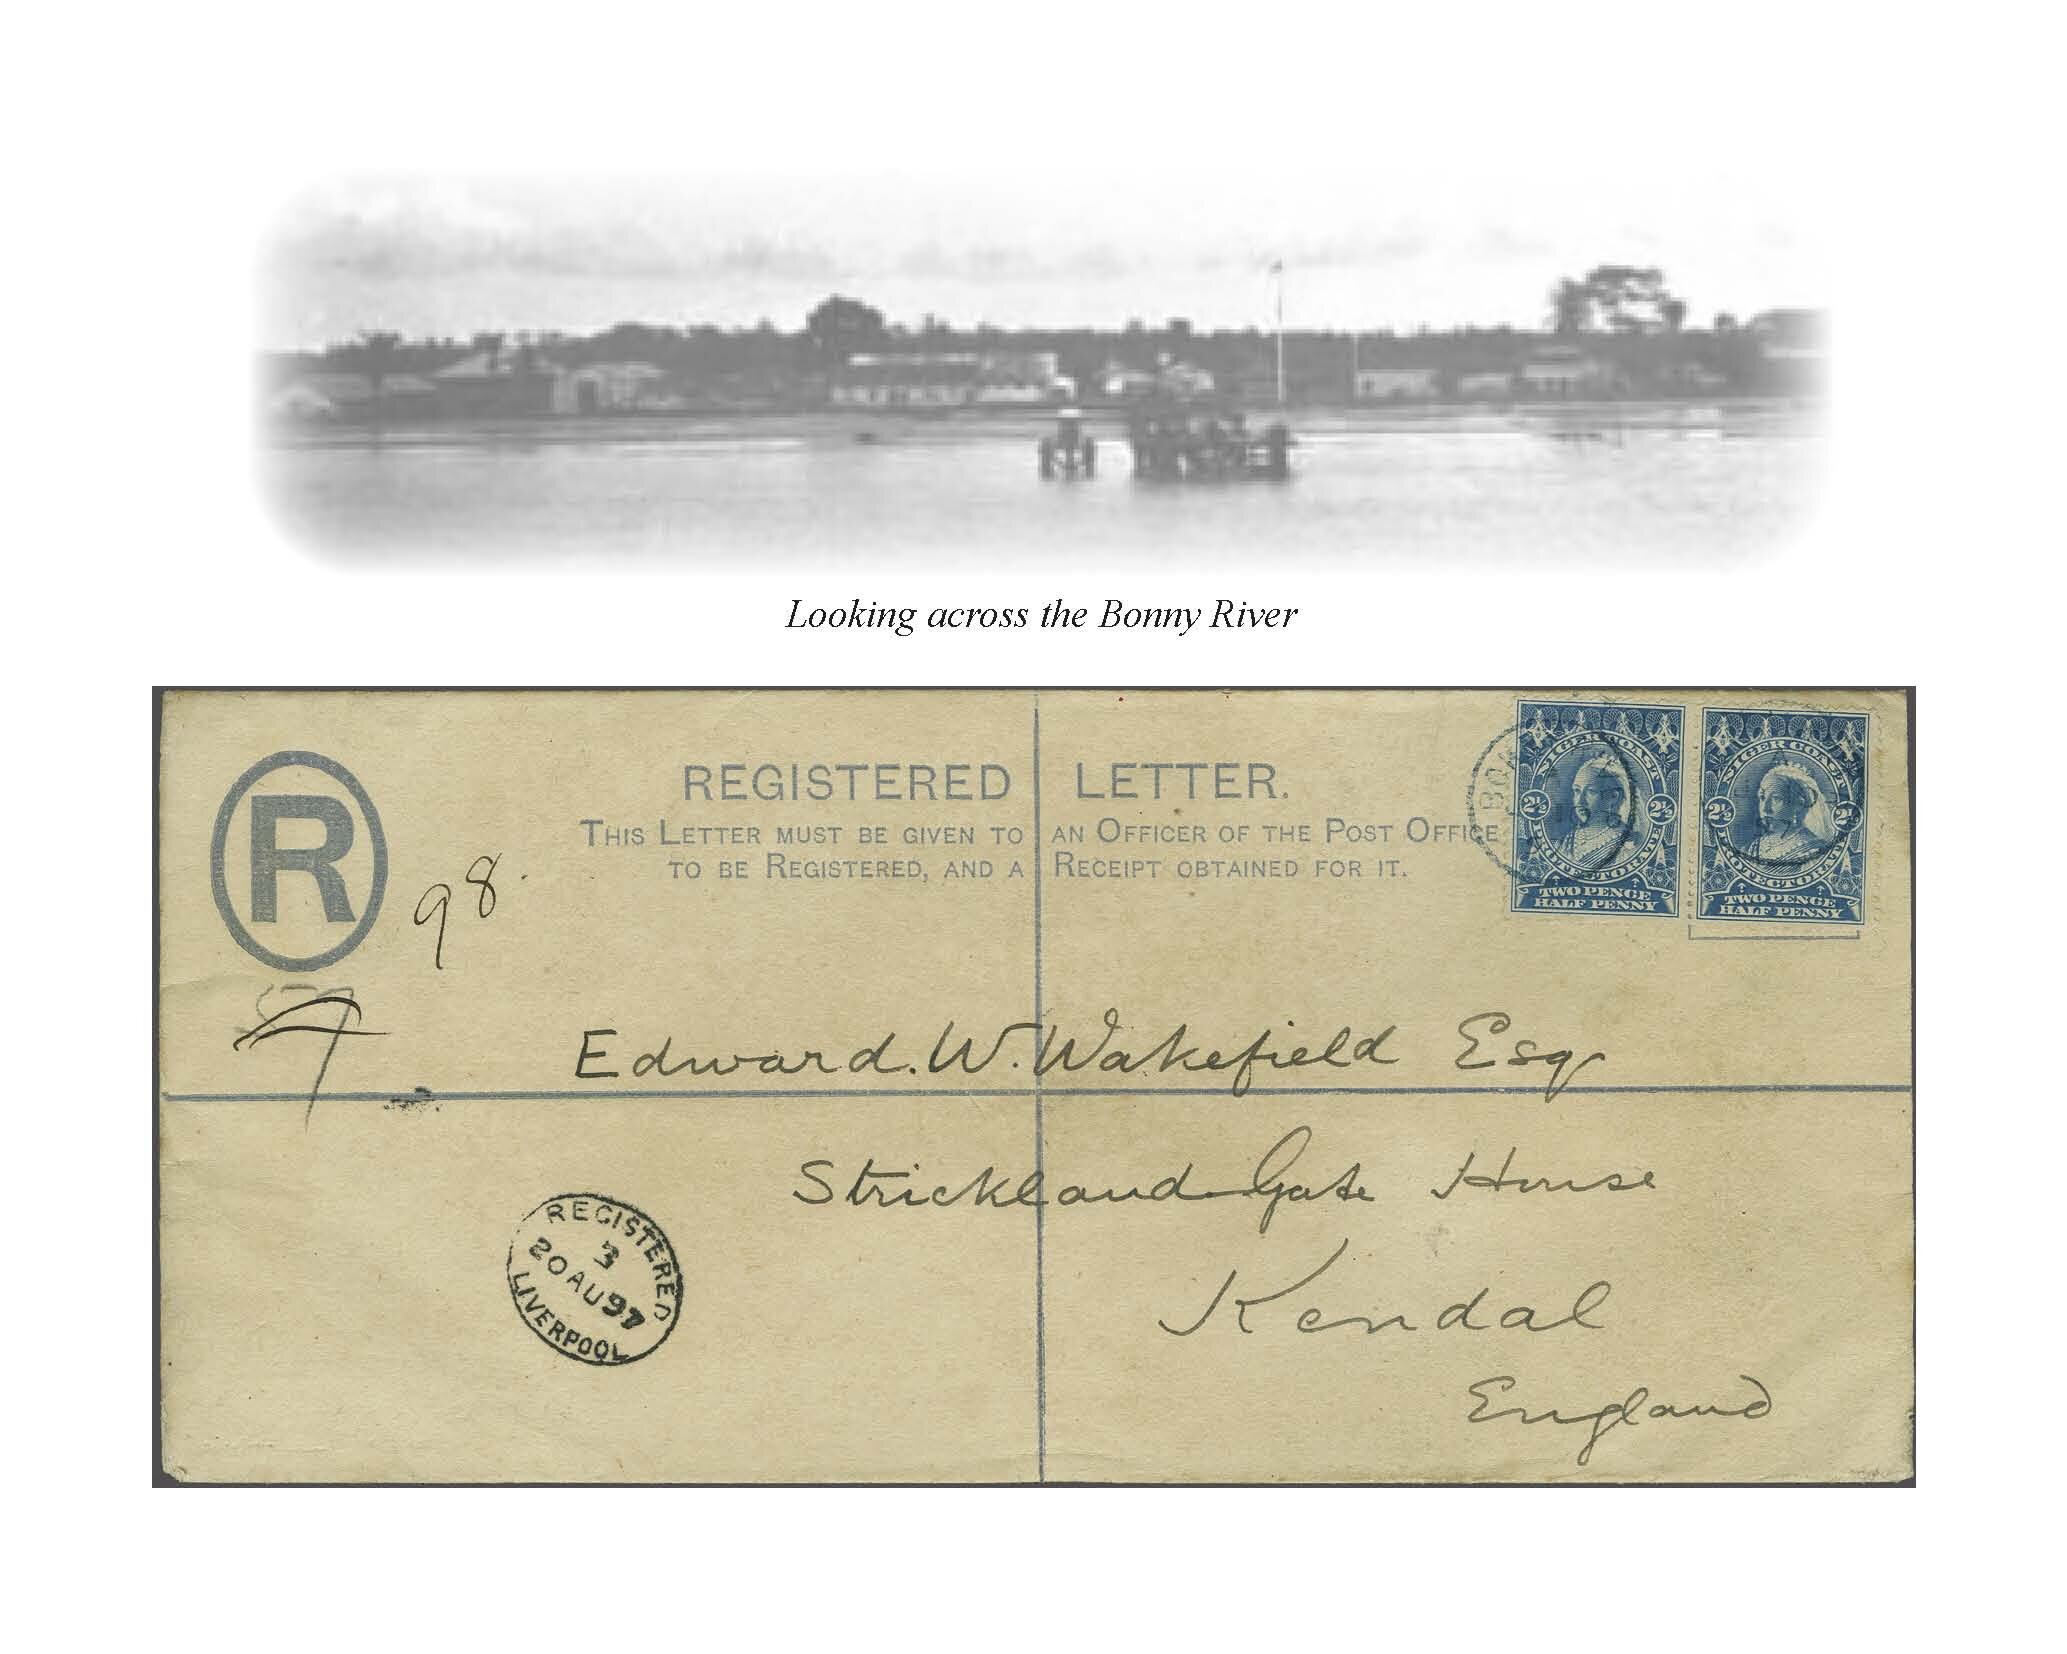 Looking across the Bonny River
R
REGISTERED LETTER.
THIS LETTER MUST BE GIVEN TO AN OFFICER OF THE POST OFFICE
TO BE REGISTERED, AND A RECEIPT OBTAINED FOR IT.
98.
NIGER COAST
2½ 2½
PROTECTORATE
TWO PENCE
HALF PENNY
NIGER COAST
2½ 2½
PROTECTORATE
TWO PENCE
HALF PENNY
Edward. W. Wakefield Esq
Strickland Gate House
Kendal
England
REGISTERED
3
20 AU 97
LIVERPOOL